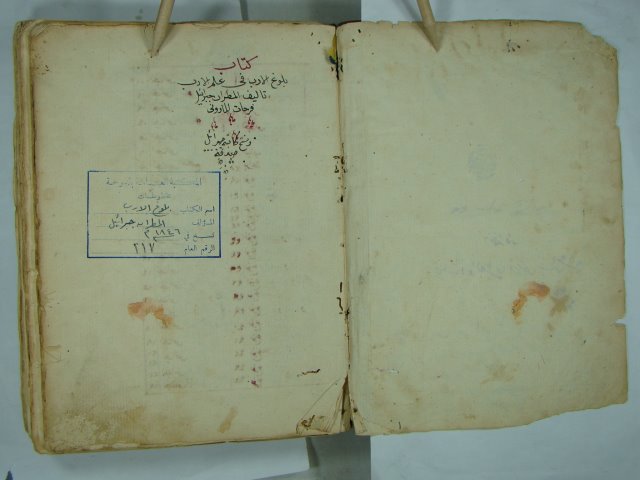 كتاب
بلوغ الارب في علم الادب
تاليف المطران جبرائيل
فرحات الماروني
المكتبة
مخطوطات
اسم الكتاب بلوغ الارب
المؤلف المطران جبرائيل
نسخ في ١٨٤٦ م
الرقم العام ٢١٧